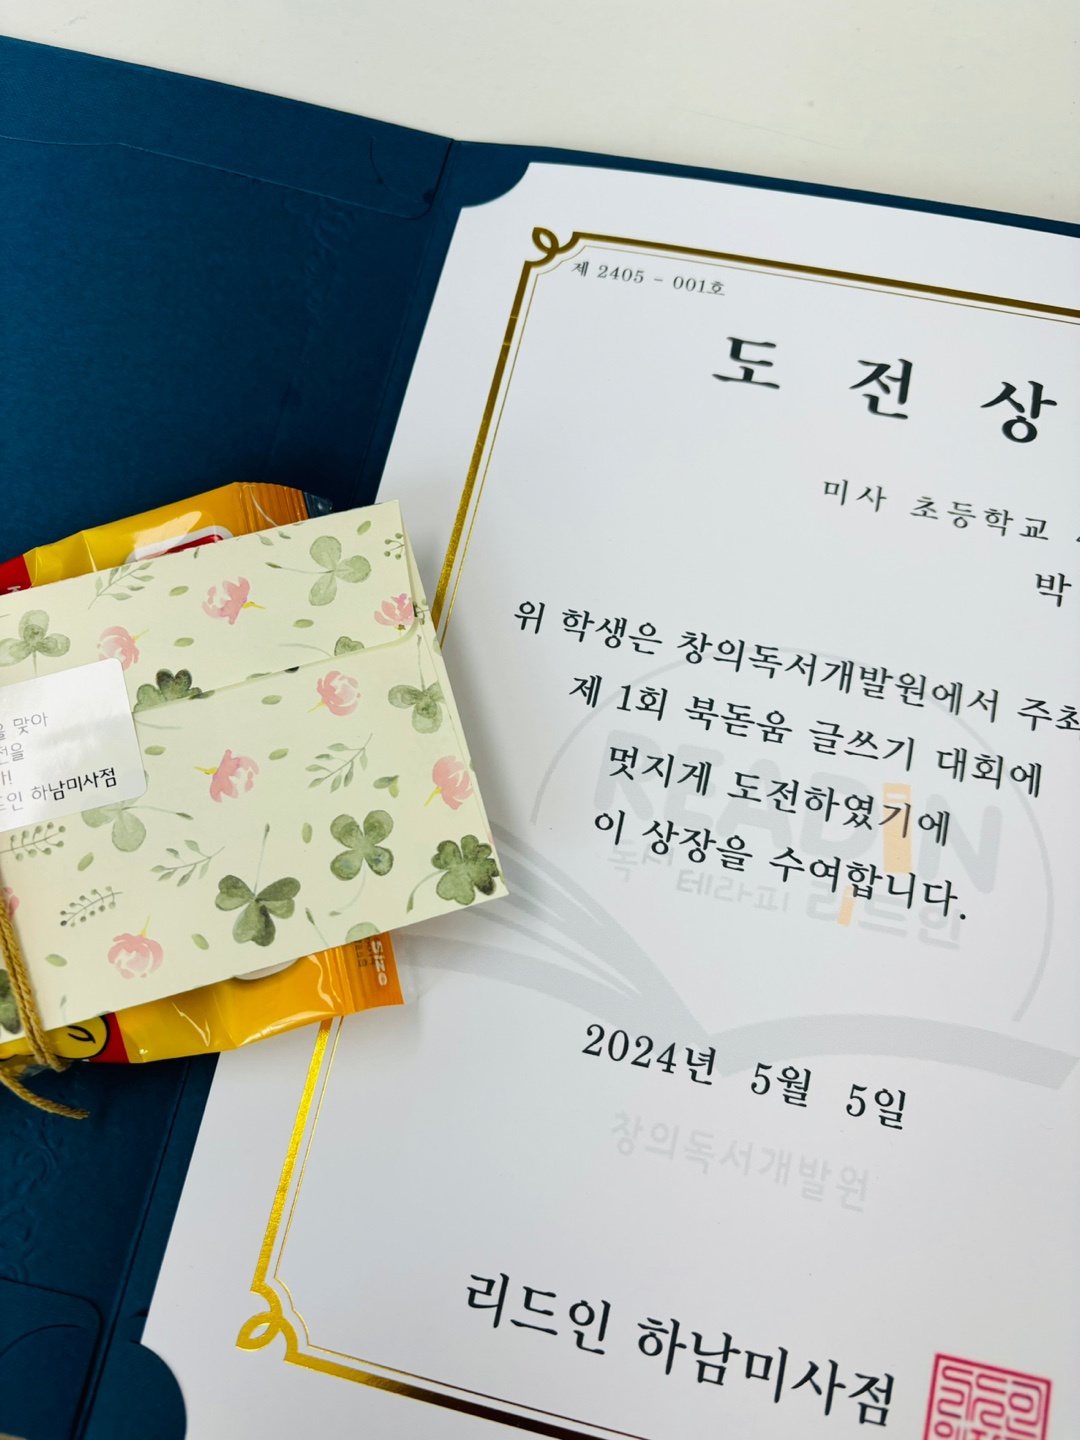 제 2405 - 001호
도 전 상
미사 초등학교
박
위 학생은 창의독서개발원에서 주최
제 1회 북돋움 글쓰기 대회에
멋지게 도전하였기에
이 상장을 수여합니다.
READIN
독서 테라피 리드인
2024년 5월 5일
창의독서개발원
리드인 하남미사점
맞아
하남미사점
Size